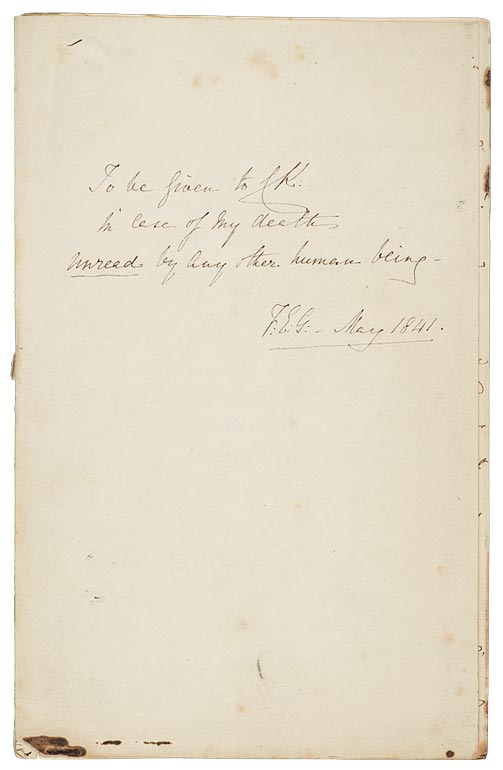 To be given to CK:
in case of my death
unread by any other human being -
F:E:G: - May 1841.